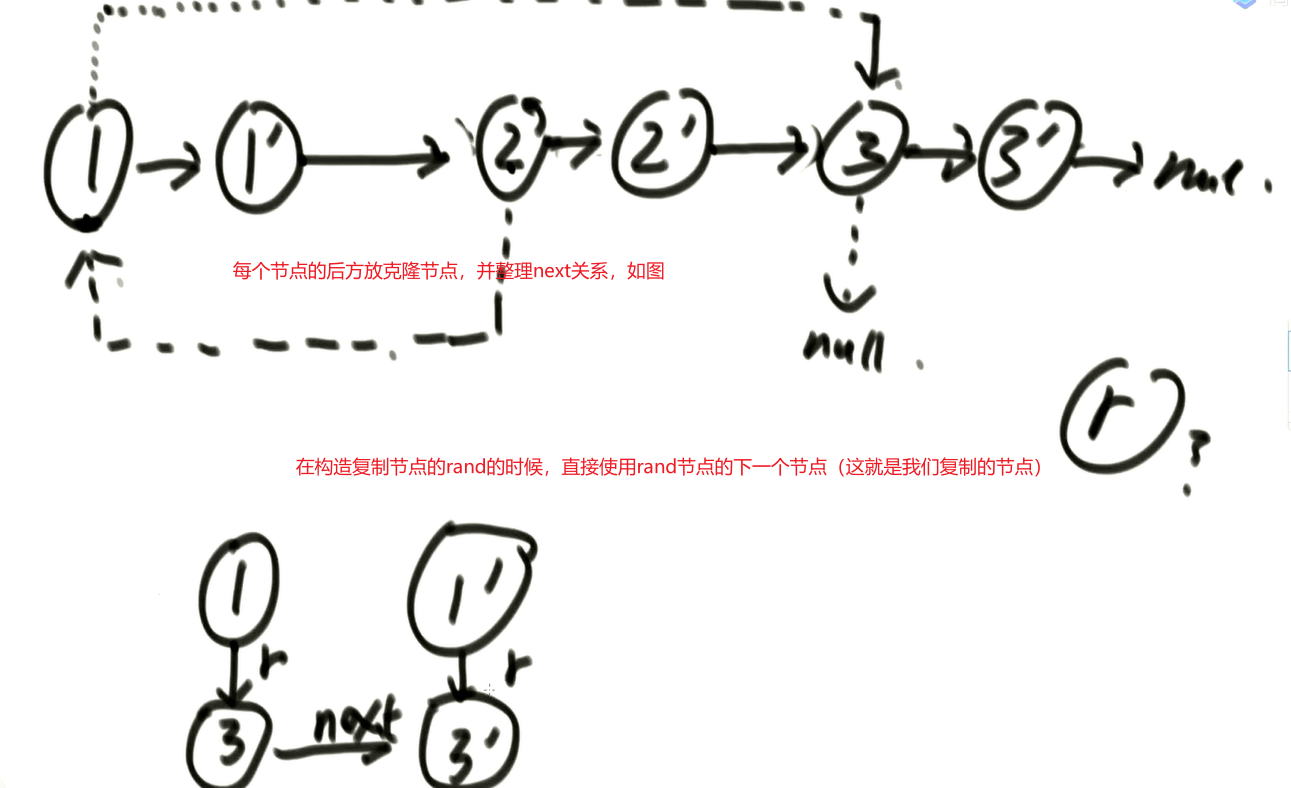 1 1' 2 2' 3 3' null.
每个节点的后方放克隆节点，并整理next关系，如图
null
r ?
在构造复制节点的rand的时候，直接使用rand节点的下一个节点（这就是我们复制的节点）
1 1'
r r
next
3 3'